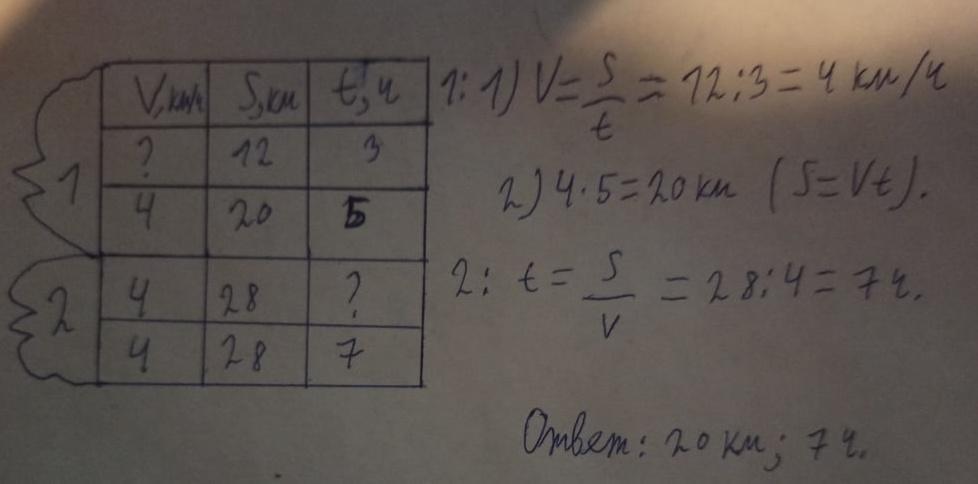 V, км/ч S, км t, ч
? 12 3
4 20 5
4 28 ?
4 28 7
1
2
1: 1) V = S/t = 12:3 = 4 км/ч
2) 4·5 = 20 км (S=Vt).
2: t = S/V = 28:4 = 7 ч.
Ответ: 20 км; 7 ч.